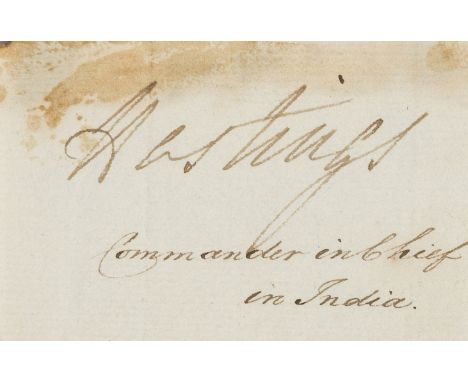 Hastings
Commander in Chief
in India.